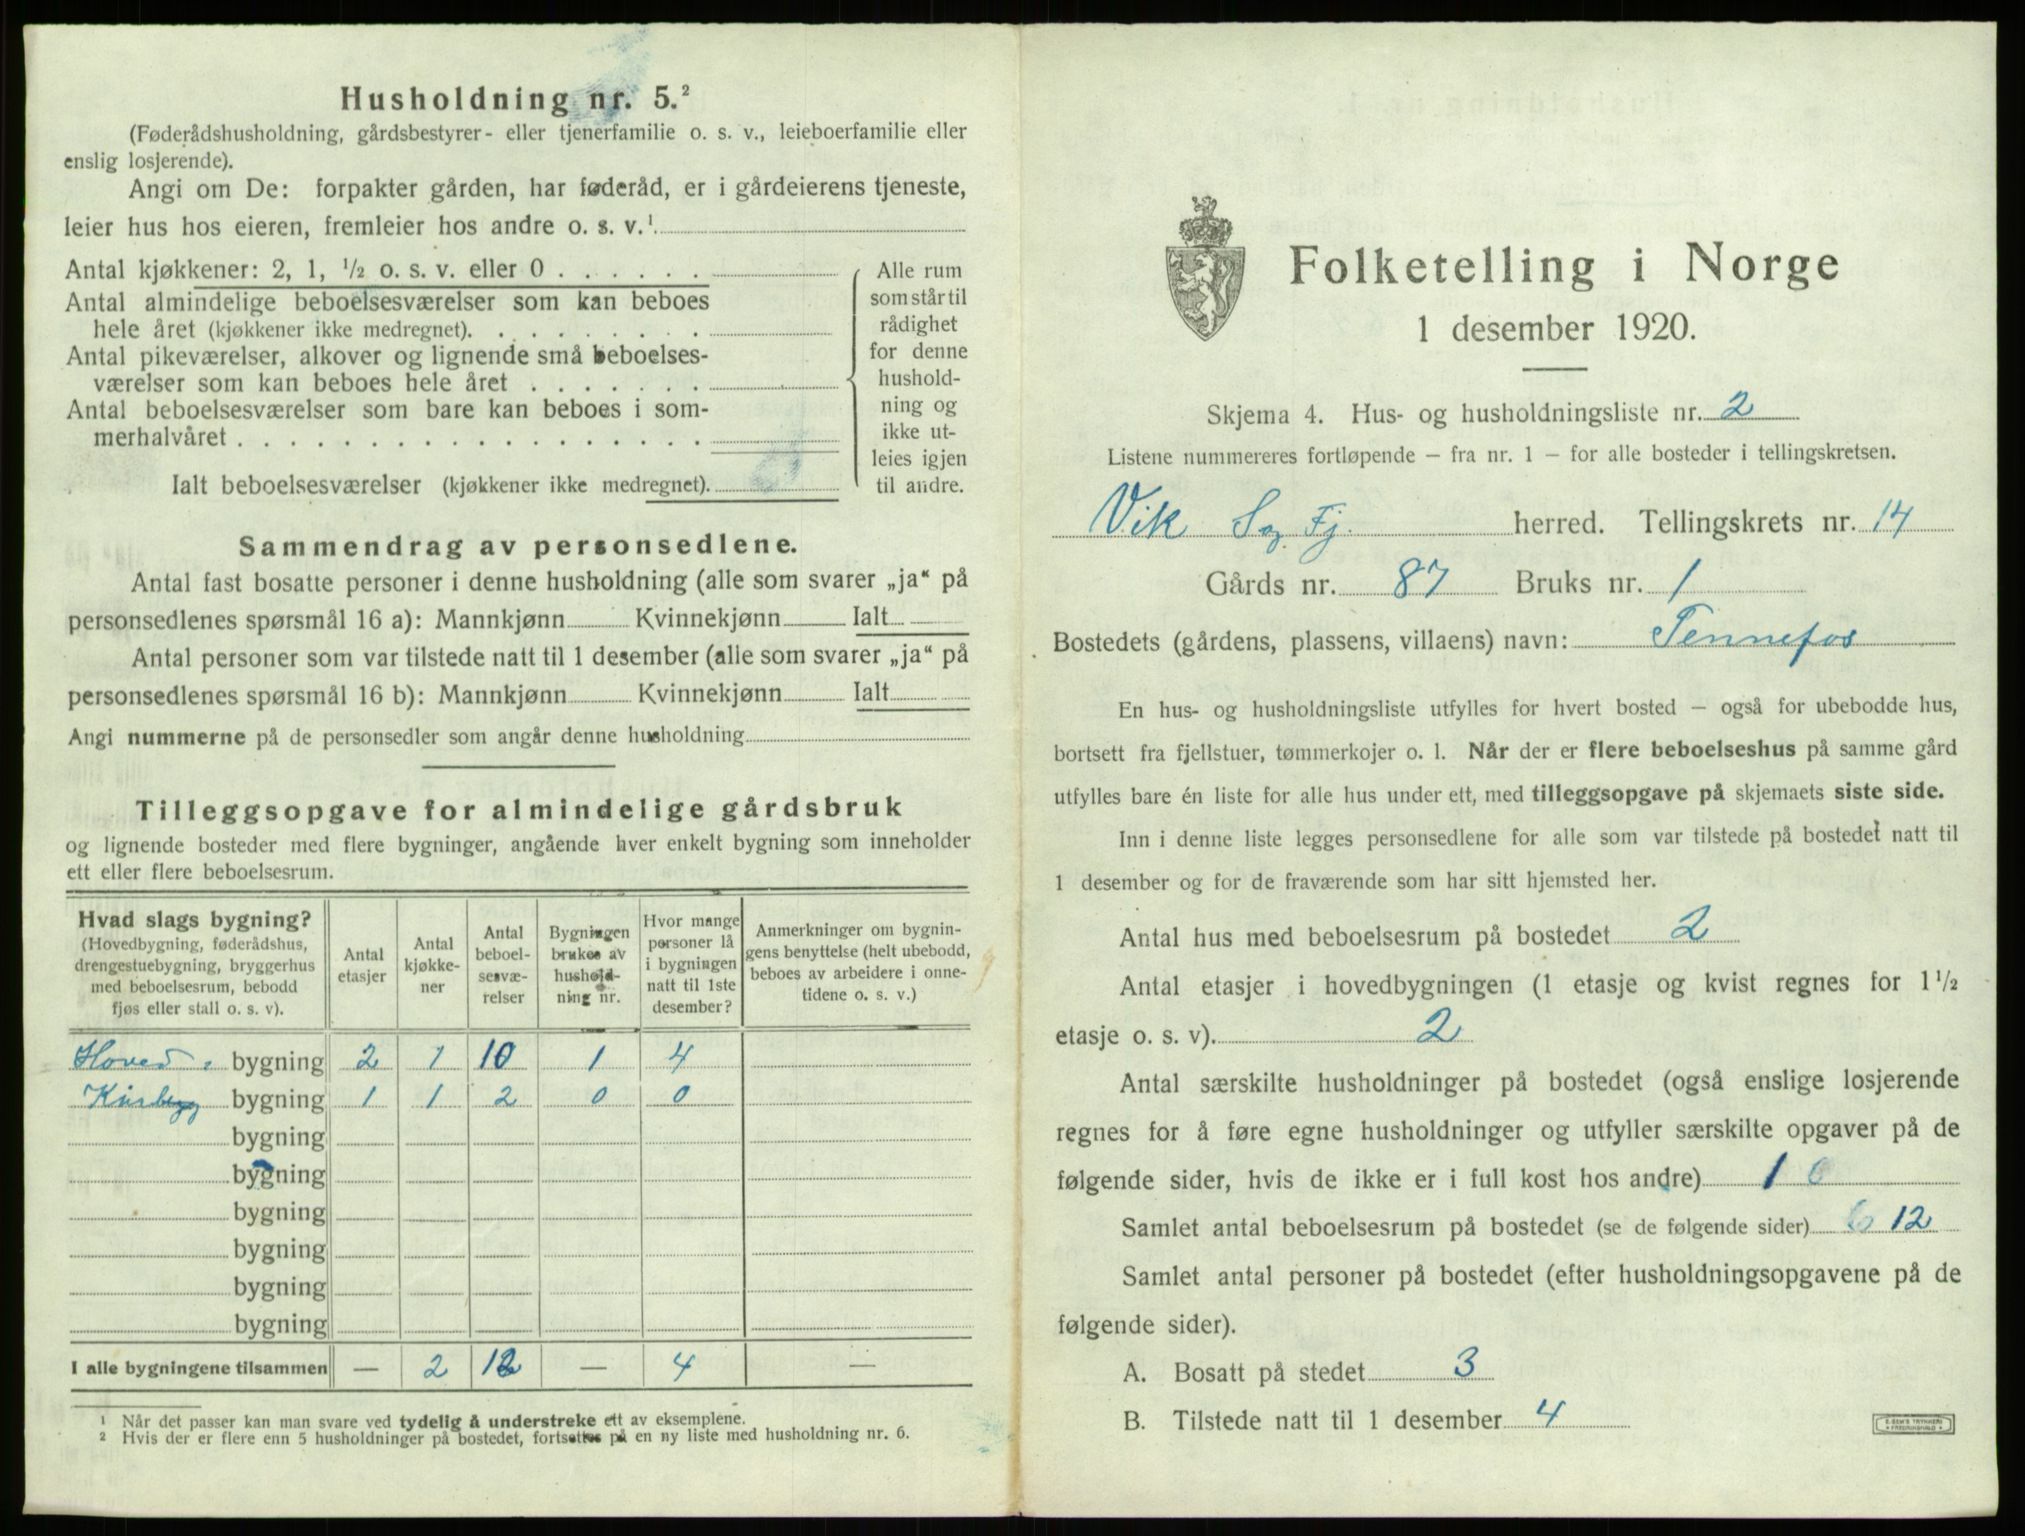 Husholdning nr. 5.²
(Føderådshusholdning, gårdsbestyrer- eller tjenerfamilie o. s. v., leieboerfamilie eller
enslig losjerende).
Angi om De: forpakter gården, har føderåd, er i gårdeierens tjeneste,
leier hus hos eieren, fremleier hos andre o. s. v.¹
Antal kjøkkener: 2, 1, ½ o. s. v. eller 0
Antal almindelige beboelsesværelser som kan beboes
hele året (kjøkkener ikke medregnet).
Antal pikeværelser, alkover og lignende små beboelses-
værelser som kan beboes hele året
Antal beboelsesværelser som bare kan beboes i som-
merhalvåret
Ialt beboelsesværelser (kjøkkener ikke medregnet).
Alle rum
som står til
rådighet
for denne
hushold-
ning og
ikke ut-
leies igjen
til andre.
Sammendrag av personsedlene.
Antal fast bosatte personer i denne husholdning (alle som svarer „ja“ på
personsedlenes spørsmål 16 a): Mannkjønn Kvinnekjønn Ialt
Antal personer som var tilstede natt til 1 desember (alle som svarer „ja“ på
personsedlenes spørsmål 16 b): Mannkjønn Kvinnekjønn Ialt
Angi nummerne på de personsedler som angår denne husholdning
Tilleggsopgave for almindelige gårdsbruk
og lignende bosteder med flere bygninger, angående hver enkelt bygning som inneholder
ett eller flere beboelsesrum.
Hvad slags bygning?
(Hovedbygning, føderådshus,
drengestuebygning, bryggerhus
med beboelsesrum, bebodd
fjøs eller stall o. s. v).
Antal
etasjer
Antal
kjøkke-
ner
Antal
beboel-
sesvæ-
relser
Bygningen
brukes av
hushold-
ning nr.
Hvor mange
personer lå
i bygningen
natt til 1ste
desember?
Anmerkninger om bygnin-
gens benyttelse (helt ubebodd,
beboes av arbeidere i onne-
tidene o. s. v.)
Hoved- bygning 2 1 10 1 4
bygning 1 1 2 0 0
bygning
bygning
bygning
bygning
bygning
bygning
I alle bygningene tilsammen — 2 12 — 4 —
¹ Når det passer kan man svare ved tydelig å understreke ett av eksemplene.
² Hvis der er flere enn 5 husholdninger på bostedet, fortsettes på en ny liste med husholdning nr. 6.
Folketelling i Norge
1 desember 1920.
Skjema 4. Hus- og husholdningsliste nr. 2
Listene nummereres fortløpende — fra nr. 1 — for alle bosteder i tellingskretsen.
Vik Sog. Fj. herred. Tellingskrets nr. 14
Gårds nr. 87 Bruks nr. 1
Bostedets (gårdens, plassens, villaens) navn: Tennefos
En hus- og husholdningsliste utfylles for hvert bosted — også for ubebodde hus,
bortsett fra fjellstuer, tømmerkojer o. l. Når der er flere beboelseshus på samme gård
utfylles bare én liste for alle hus under ett, med tilleggsopgave på skjemaets siste side.
Inn i denne liste legges personsedlene for alle som var tilstede på bostedet natt til
1 desember og for de fraværende som har sitt hjemsted her.
Antal hus med beboelsesrum på bostedet 2
Antal etasjer i hovedbygningen (1 etasje og kvist regnes for 1½
etasje o. s. v). 2
Antal særskilte husholdninger på bostedet (også enslige losjerende
regnes for å føre egne husholdninger og utfyller særskilte opgaver på de
følgende sider, hvis de ikke er i full kost hos andre) 1 6
Samlet antal beboelsesrum på bostedet (se de følgende sider) 6 12
Samlet antal personer på bostedet (efter husholdningsopgavene på de
følgende sider).
A. Bosatt på stedet 3
B. Tilstede natt til 1 desember 4